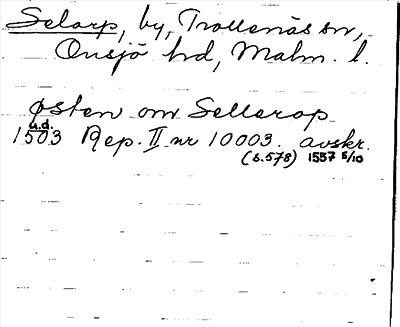 Selarp, by, Trollenäs sn,
Onsjö hd, Malm. l.
østen om Sellerop
u.d.
1503 Rep. II nr 10003. avskr.
(s.578) 1557 5/10